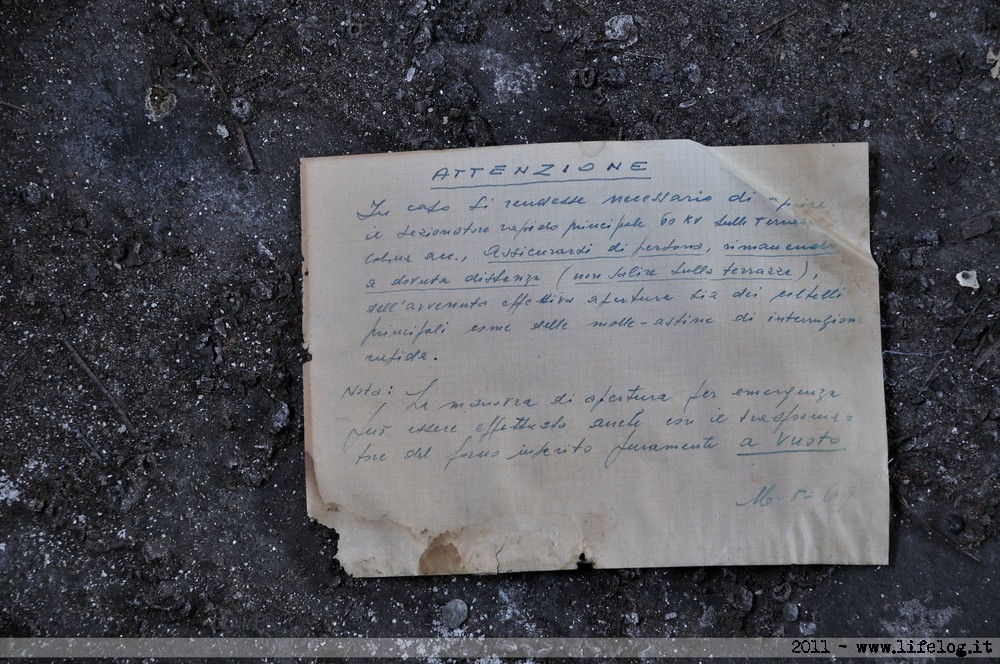 ATTENZIONE
In caso si rendesse necessario di aprire
il sezionatore rapido principale 60 KV sulla
a.c., assicurarsi di persona, rimanendo
a dovuta distanza (non salire sulla terrazza),
dell'avvenuta effettiva apertura sia dei coltelli
principali come delle molle-astine di interruzione
rapida.
Nota: La manovra di apertura per emergenza
può essere effettuata anche con il trasforma=
tore del forno inserito puramente a vuoto
2011 - www.lifelog.it